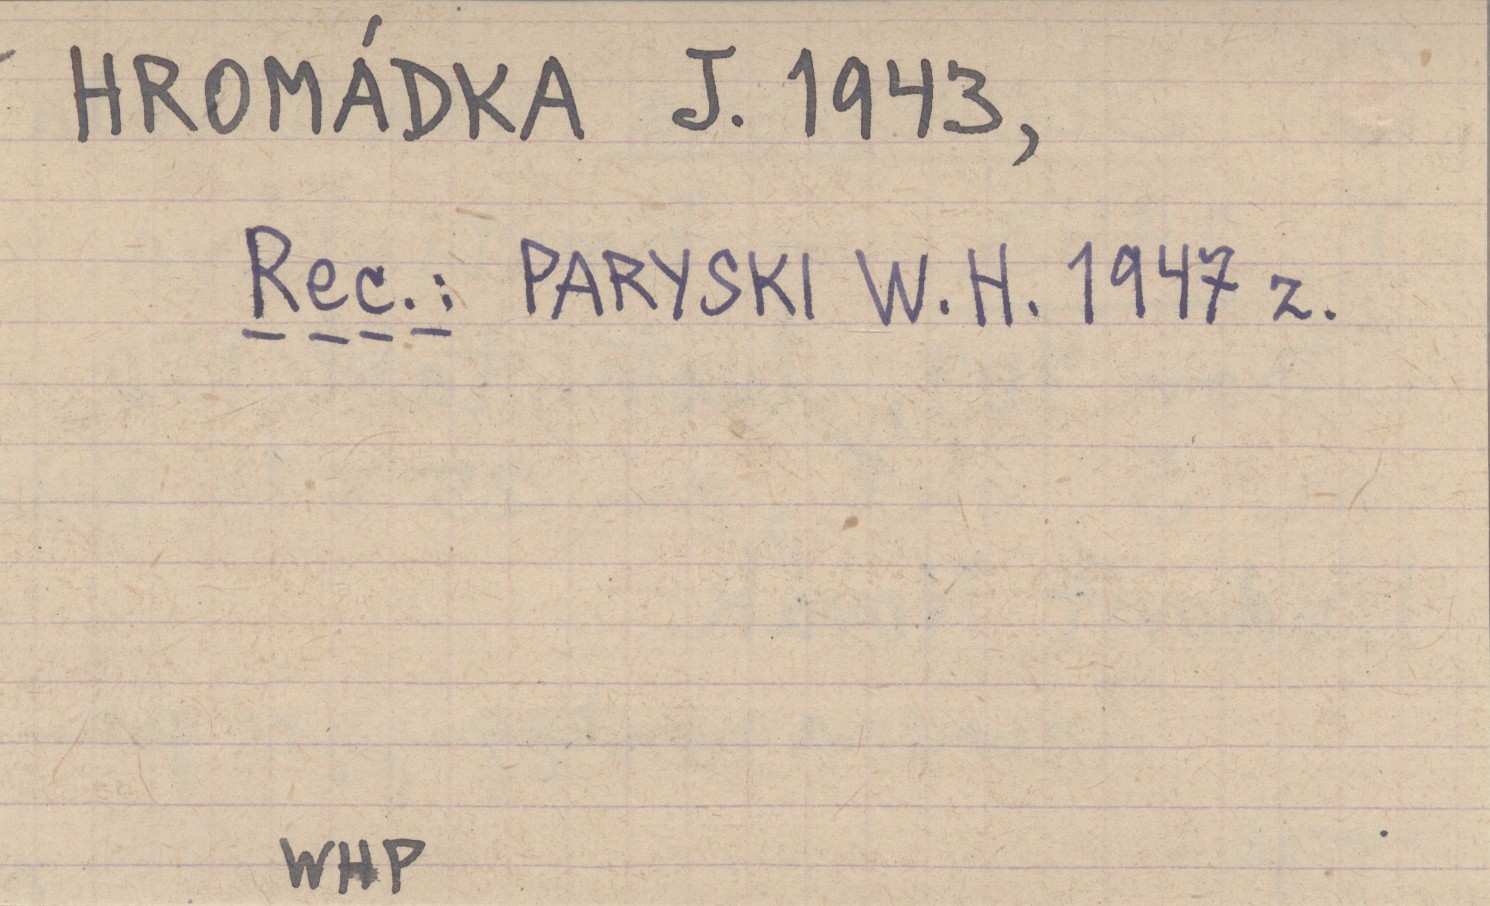 HROMÁDKA J. 1943,
Rec.: PARYSKI W.H. 1947 z.
WHP